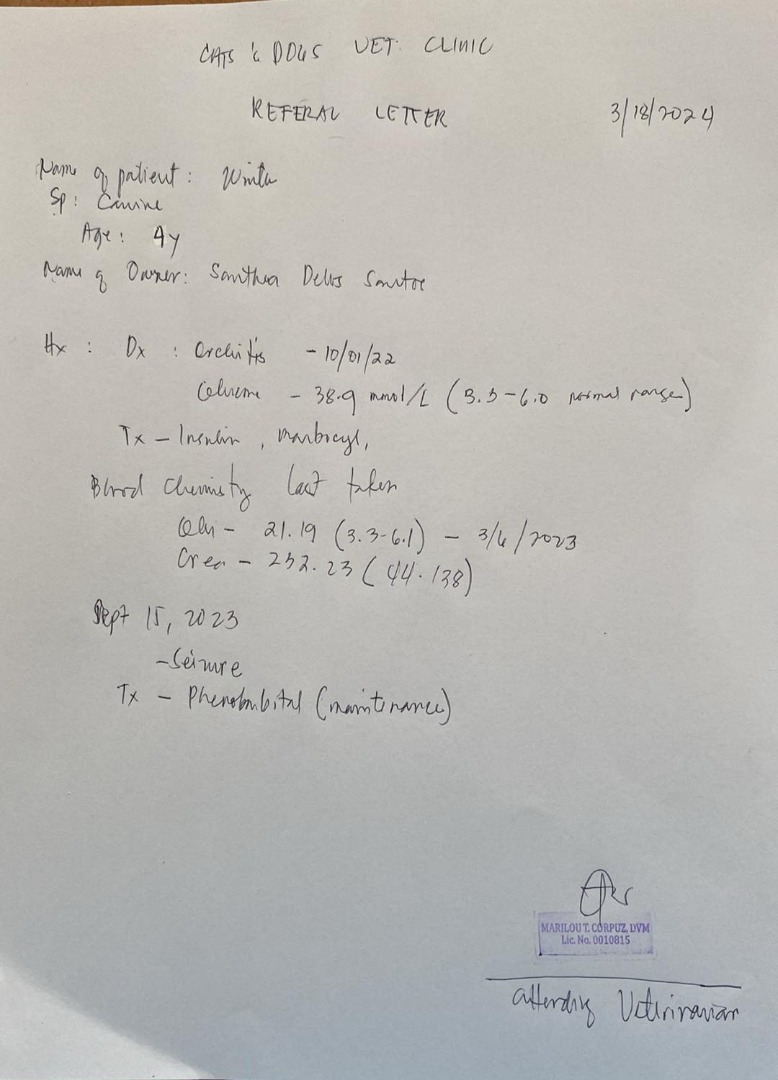 CATS & DOGS VET. CLINIC
REFERAL LETTER 3/18/2024
Name of patient:
Sp: Canine
Age: 4y
Name of Owner: Santhea Delos Santos
Hx: Dx: Orchitis - 10/01/22
Glucose - 38.9 mmol/L (3.3-6.0 normal range)
Tx - Insulin, marbocyl,
Blood Chemistry last taken
Glu - 21.19 (3.3-6.1) - 3/6/2023
Crea - 232.23 (44.138)
Sept 15, 2023
- Seizure
Tx - Phenobarbital (maintenance)
MARILOU T. CORPUZ, DVM
Lic. No. 0010815
attending Veterinarian